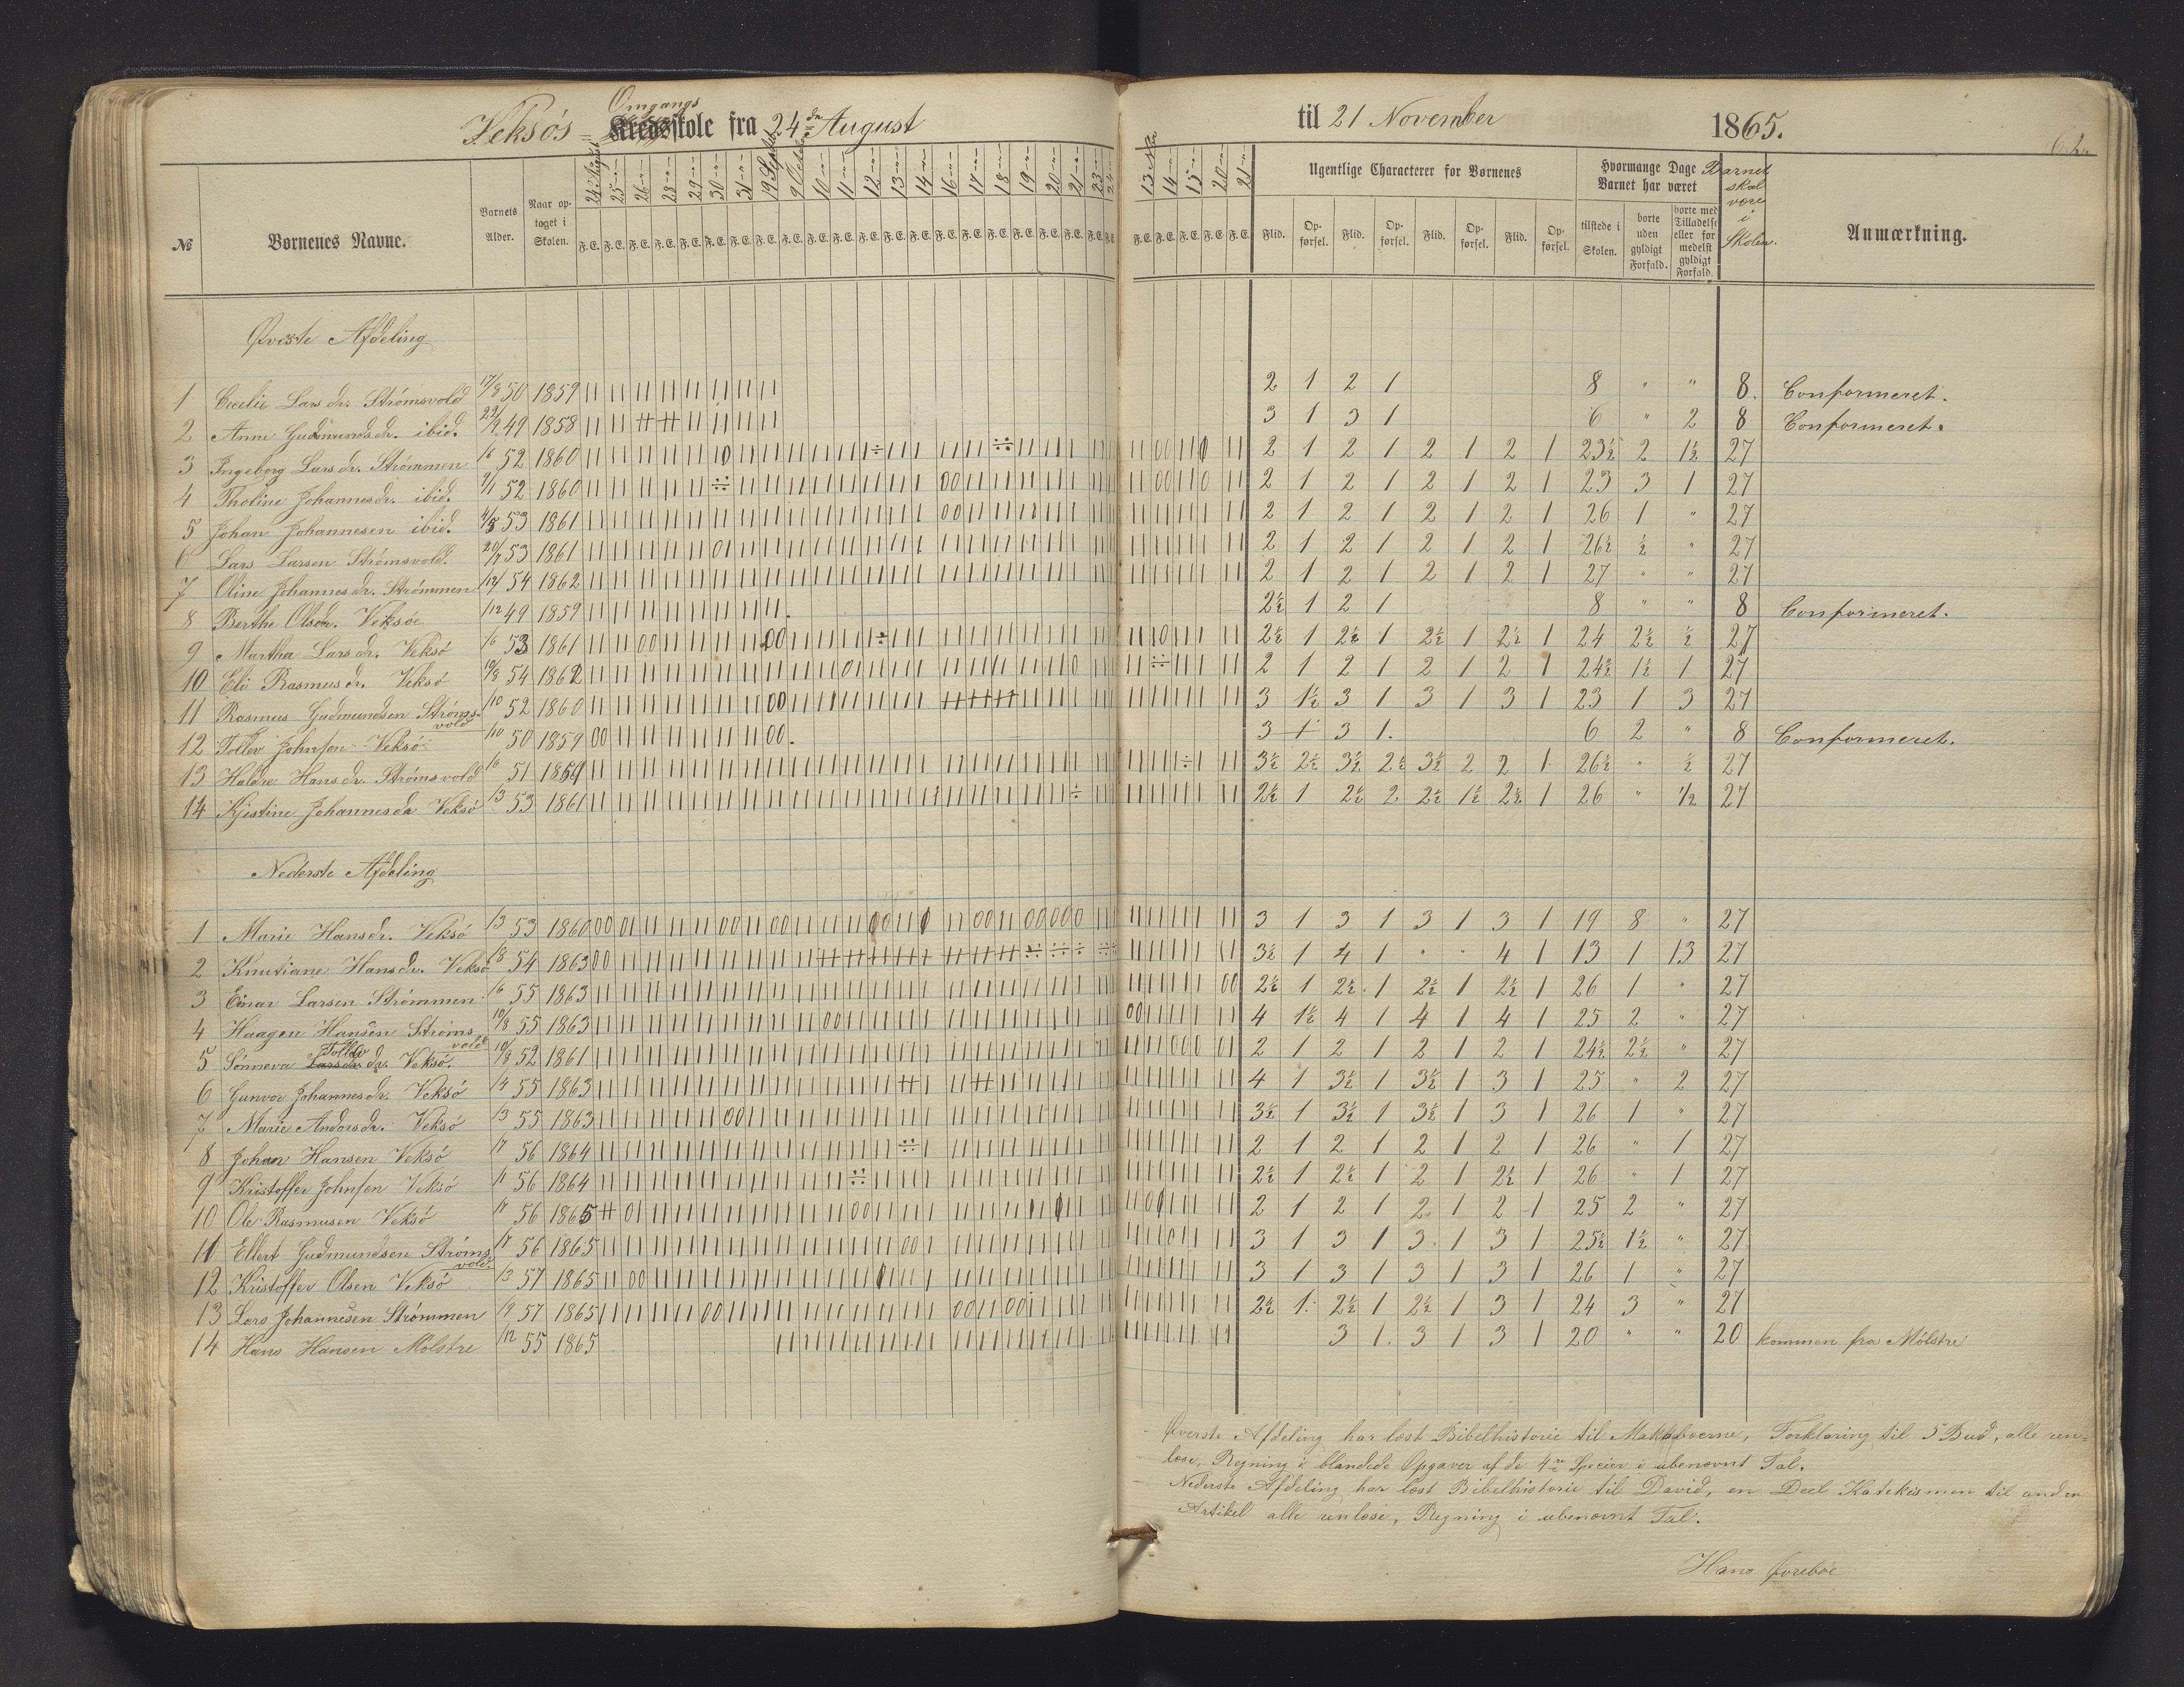 Veksø's = Omgangs Kredsskole fra 24de August til 21 November 1865.
№ Børnenes Navne. Barnets Alder. Naar optaget i Skolen. Ugentlige Characterer for Børnenes Hvormange Dage Barnet har været Barnet skal være i Skolen. Anmærkning.
24 August 25 26 28 29 30 31 19 Septbr 9 Octbr 10 11 12 13 14 16 17 18 19 20 21 23 24 13 Nvbr 14 15 20 21
F. E. Flid. Opførsel. Flid. Opførsel. Flid. Opførsel. Flid. Opførsel. tilstede i Skolen. borte uden gyldigt Forfald. borte med Tilladelse eller formedelst gyldigt Forfald.
Øverste Afdeling
1 Cecelie Larsdr. Strømsvold 17/8 50 1859 2 1 2 1 8 " " 8. Conformeret.
2 Anne Gudmundsdr. ibid. 49 1858 3 1 3 1 6 " 2 8 Conformeret.
3 Ingeborg Larsdr. Strømmen 1/6 52 1860 2 1 2 1 2 1 2 1 23½ 2 1½ 27
4 Tholine Johannesdr. ibid. 52 1860 2 1 2 1 2 1 2 1 23 3 1 27
5 Johan Johannesen ibid. 4/5 53 1861 2 1 2 1 2 1 2 1 26 1 " 27
6 Lars Larsen Strømsvold. 53 1861 2 1 2 1 2 1 2 1 26½ ½ " 27
7 Oline Johannesdr. Strømmen 54 1862 2 1 2 1 2 1 2 1 27 " " 27
8 Berthe Olsdr. Veksøe 1/12 49 1859 2½ 1 2 1 8 " " 8 Conformeret.
9 Martha Larsdr. Veksø 1/6 53 1861 2½ 1 2½ 1 2½ 1 2½ 1 24 2½ ½ 27
10 Eli Rasmusdr. Veksø 19/8 54 1862 2 1 2 1 2 1 2 1 24½ 1½ 1 27
11 Rasmus Gudmundsen Strømsvold 1/10 52 1860 3 1½ 3 1 3 1 3 1 23 1 3 27
12 Tollev Johnsen Veksø 1/10 50 1859 3 1 3 1. 6 2 " 8 Conformeret.
13 Haldne Hansdr. Strømsvold 51 1864 3½ 2½ 3½ 2½ 3½ 2 2 1 26½ " ½ 27
14 Kjistine Johannesdr Veksø 1/3 53 1861 2½ 1 2½ 2 2½ 1½ 2½ 1 26 " 1/2 27
Nederste Afdeling
1 Marie Hansdr. Veksø 1/3 53 1860 3 1 3 1 3 1 3 1 19 8 " 27
2 Knutiane Hansdr. Veksø 1/8 54 1863 3½ 1 4 1 " " 4 1 13 1 13 27
3 Einar Larsen Strømmen 1/6 55 1863 2½ 1 2½ 1 2½ 1 2½ 1 26 1 " 27
4 Haagen Hansen Strømsvold 10/8 55 1863 4 1½ 4 1 4 1 4 1 25 2 " 27
5 Sønneva Larsdr. Tollevdr. Veksø. 10/8 52 1861 2 1 2 1 2 1 2 1 24½ 2½ " 27
6 Gunvor Johannesdr. Veksø 1/4 55 1863 4 1 3½ 1 3½ 1 3 1 25 " 2 27
7 Marie Andersdr. Veksø 1/3 55 1863 3½ 1 3½ 1 3½ 1 3 1 26 1 " 27
8 Johan Hansen Veksø 1/7 56 1864 2 1 2 1 2 1 2 1 26 " 1 27
9 Kristoffer Johnsen Veksø 56 1864 2½ 1 2½ 1 2 1 2½ 1 26 " 1 27
10 Ole Rasmusen Veksø 56 1865 2 1 2 1 2 1 2 1 25 2 " 27
11 Ellert Gudmundsen Strømsvold. 1/7 56 1865 3 1 3 1 3 1 3 1 25½ 1½ " 27
12 Kristoffer Olsen Veksø 1/3 57 1865 3 1 3 1 3 1 3 1 26 1 " 27
13 Lars Johannesen Strømmen 1/9 57 1865 2½ 1 2½ 1 2½ 1 3 1 24 3 " 27
14 Hans Hansen Mølstre 1/12 55 1865 3 1. 3 1 3 1 20 " " 20 kommen fra Mølstre
Øverste Afdeling har læst Bibelhistorie til Makabæerne, Forklaring til 5 Bud, alle ren=
læse, Regning i blandede Opgaver af de 4re Specier i ubenævnt Tal.
Nederste Afdeling har læst Bibelhistorie til David, en Deel Katekismen til anden
Artikel alle renlæse, Regning i ubenævnt Tal.
Hans Førebøe